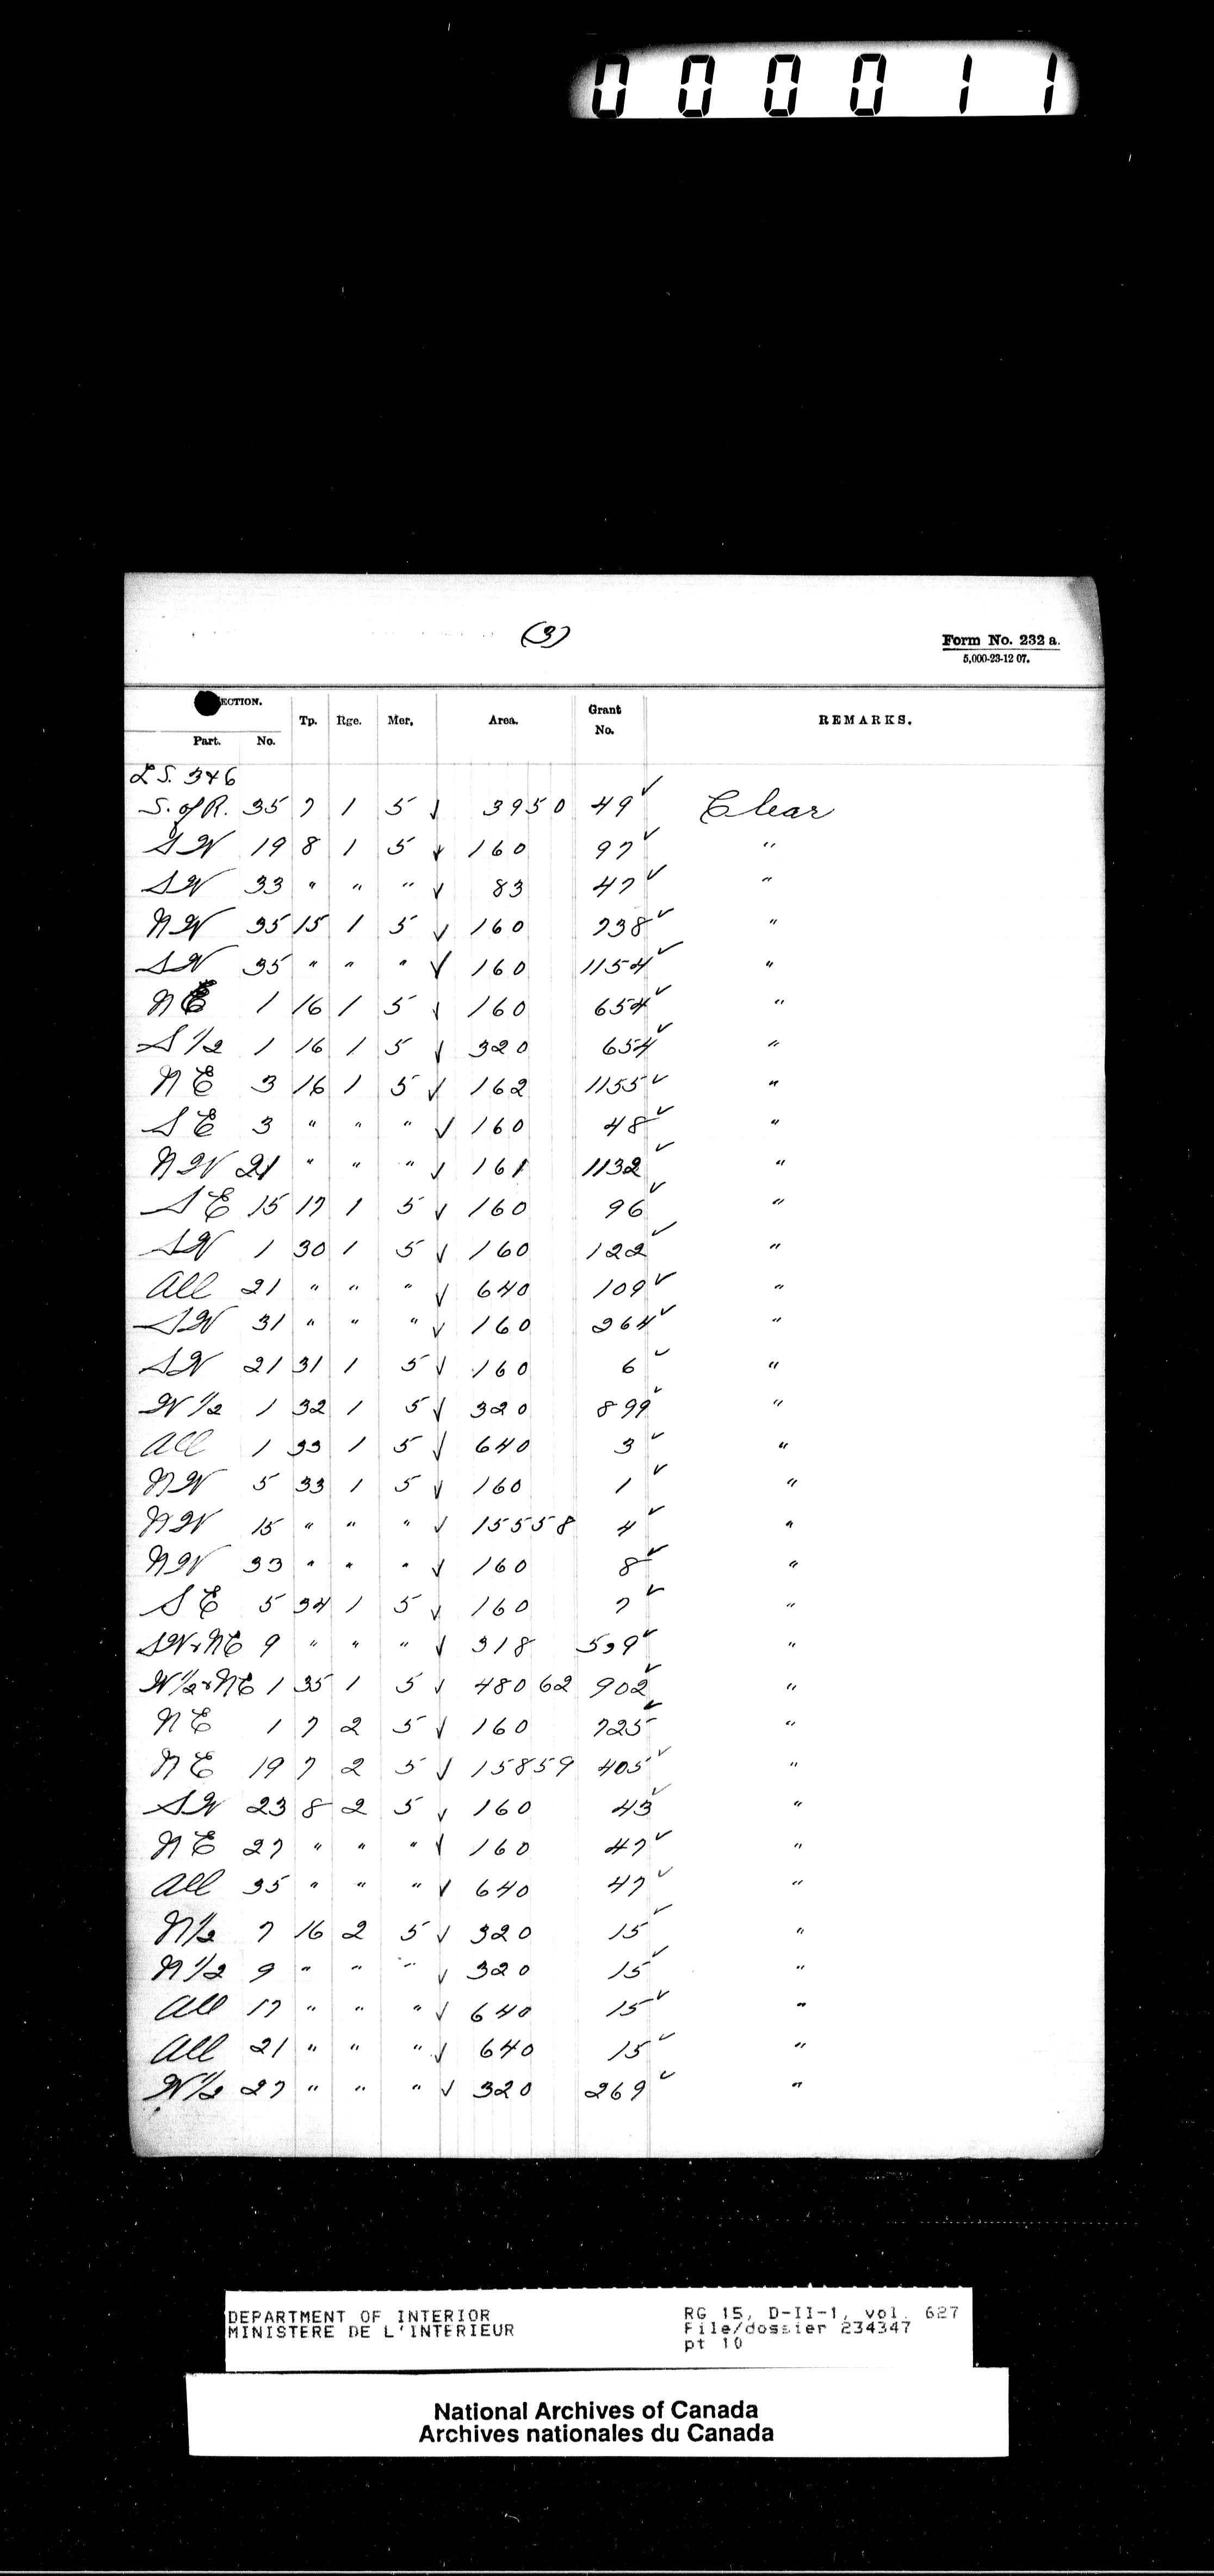 000011
(3)
Form No. 232 a.
5,000-23-12 07.
SECTION. Tp. Rge. Mer. Area. Grant No. REMARKS.
Part. No.
L S. 3 & 6
S. of R. 35 7 1 5 ✓ 39 50 49 ✓ Clear
SW 19 8 1 5 ✓ 160 97 ✓ "
SW 33 " " " ✓ 83 47 ✓ "
NW 35 15 1 5 ✓ 160 738 ✓ "
SW 35 " " " ✓ 160 1154 ✓ "
NE 1 16 1 5 ✓ 160 654 ✓ "
S 1/2 1 16 1 5 ✓ 320 654 ✓ "
NE 3 16 1 5 ✓ 162 1155 ✓ "
SE 3 " " " ✓ 160 48 ✓ "
NW 21 " " " ✓ 161 1132 ✓ "
SE 15 17 1 5 ✓ 160 96 ✓ "
SW 1 30 1 5 ✓ 160 122 ✓ "
All 21 " " " ✓ 640 109 ✓ "
SW 31 " " " ✓ 160 264 ✓ "
SW 21 31 1 5 ✓ 160 6 ✓ "
W 1/2 1 32 1 5 ✓ 320 899 ✓ "
All 1 33 1 5 ✓ 640 3 ✓ "
NW 5 33 1 5 ✓ 160 1 ✓ "
NW 15 " " " ✓ 155 58 4 ✓ "
NW 33 " " " ✓ 160 8 ✓ "
SE 5 34 1 5 ✓ 160 7 ✓ "
SW & NE 9 " " " ✓ 318 539 ✓ "
W 1/2 & NE 1 35 1 5 ✓ 480 62 902 ✓ "
NE 1 7 2 5 ✓ 160 725 ✓ "
NE 19 7 2 5 ✓ 158 59 405 ✓ "
SW 23 8 2 5 ✓ 160 43 ✓ "
NE 27 " " " ✓ 160 47 ✓ "
All 35 " " " ✓ 640 47 ✓ "
N 1/2 7 16 2 5 ✓ 320 15 ✓ "
N 1/2 9 " " " ✓ 320 15 ✓ "
All 17 " " " ✓ 640 15 ✓ "
All 21 " " " ✓ 640 15 ✓ "
W 1/2 27 " " " ✓ 320 269 ✓ "
DEPARTMENT OF INTERIOR RG 15, D-II-1, vol. 627
MINISTERE DE L'INTERIEUR File/dossier 234347
pt 10
National Archives of Canada
Archives nationales du Canada